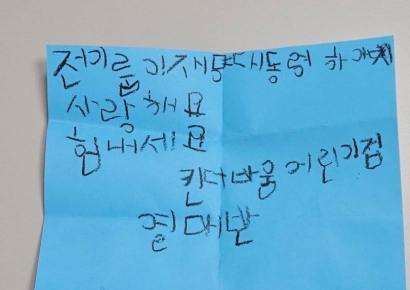 전기를 이재명대통령 하
사랑해요
힘내세요
킨더바움 어린이집
열매반